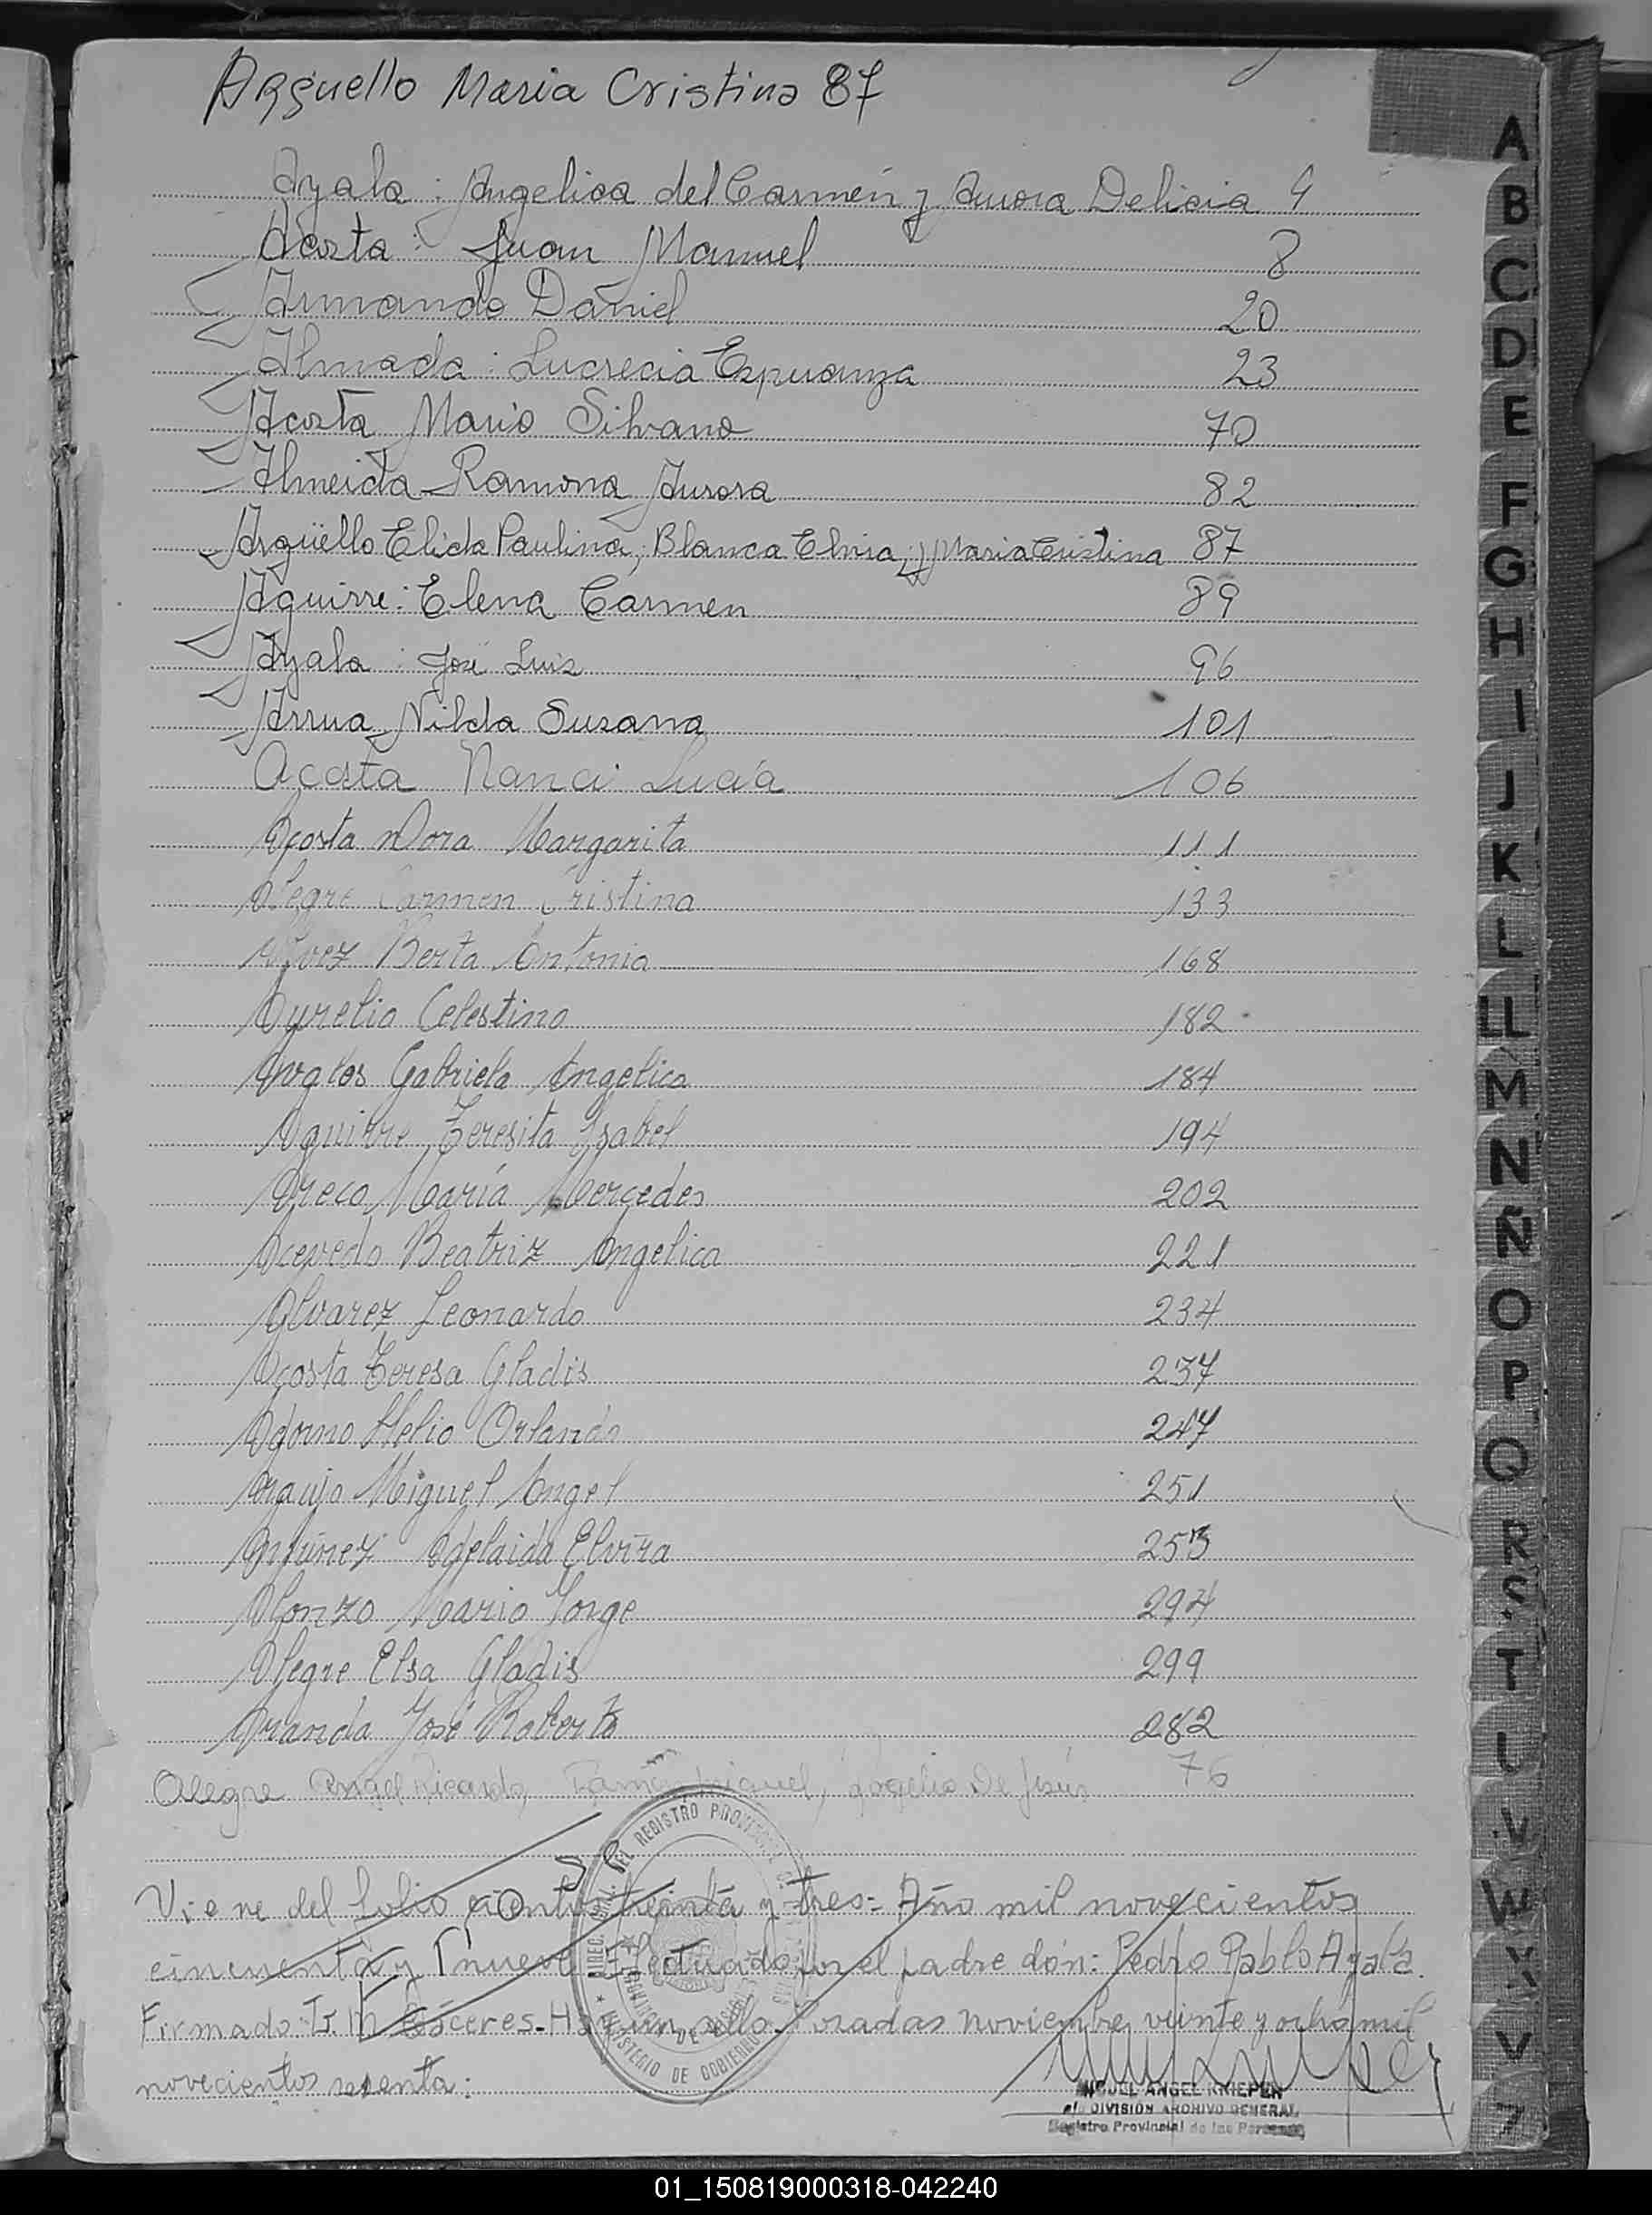 Arguello Maria Cristina 87
Ayala: Angelica del Carmen y Aurora Delicia 4
Acosta: Juan Manuel 8
Armando Daniel 20
Almada: Lucrecia Esperanza 23
Acosta Mario Silvano 70
Almeida Ramona Aurora 82
Argüello Elida Paulina, Blanca Elvia, y Maria Cristina 87
Aguirre: Elena Carmen 89
Ayala: José Luis 96
Arrua Nilda Susana 101
Acosta Nanci Lucía 106
Acosta Dora Margarita 111
Alegre Carmen Cristina 133
Berta Antonia 168
Aurelio Celestino 182
Avalos Gabriela Angelica 184
Aguirre Teresita Ysabel 194
Areco María Mercedes 202
Acevedo Beatriz Angelica 221
Alvarez Leonardo 234
Acosta Teresa Gladis 237
Adorno Helio Orlando 247
Araujo Miguel Angel 251
Antúnez Adelaida Elvira 253
Alonzo Mario Jorge 294
Alegre Elsa Gladis 299
Aranda José Roberto 282
Alegre Angel Ricardo, Ramón Miguel, Rogelio De Jesús 76
Viene del folio ciento treinta y tres= Año mil novecientos
cincuenta y nueve Efectuado por el padre don: Pedro Pablo Ayala.
Firmado: Cáceres-Hay un sello-Posadas noviembre veinte y ocho mil
novecientos setenta:
DIREC. DEL REGISTRO PROVINCIAL
MINISTERIO DE GOBIERNO
MIGUEL ANGEL KRIEGER
DIVISION ARCHIVO GENERAL
Registro Provincial de las Personas
A
B
C
D
E
F
G
H
I
J
K
L
LL
M
N
Ñ
O
P
Q
R
S
T
U
V
W
X
Y
Z
01_150819000318-042240